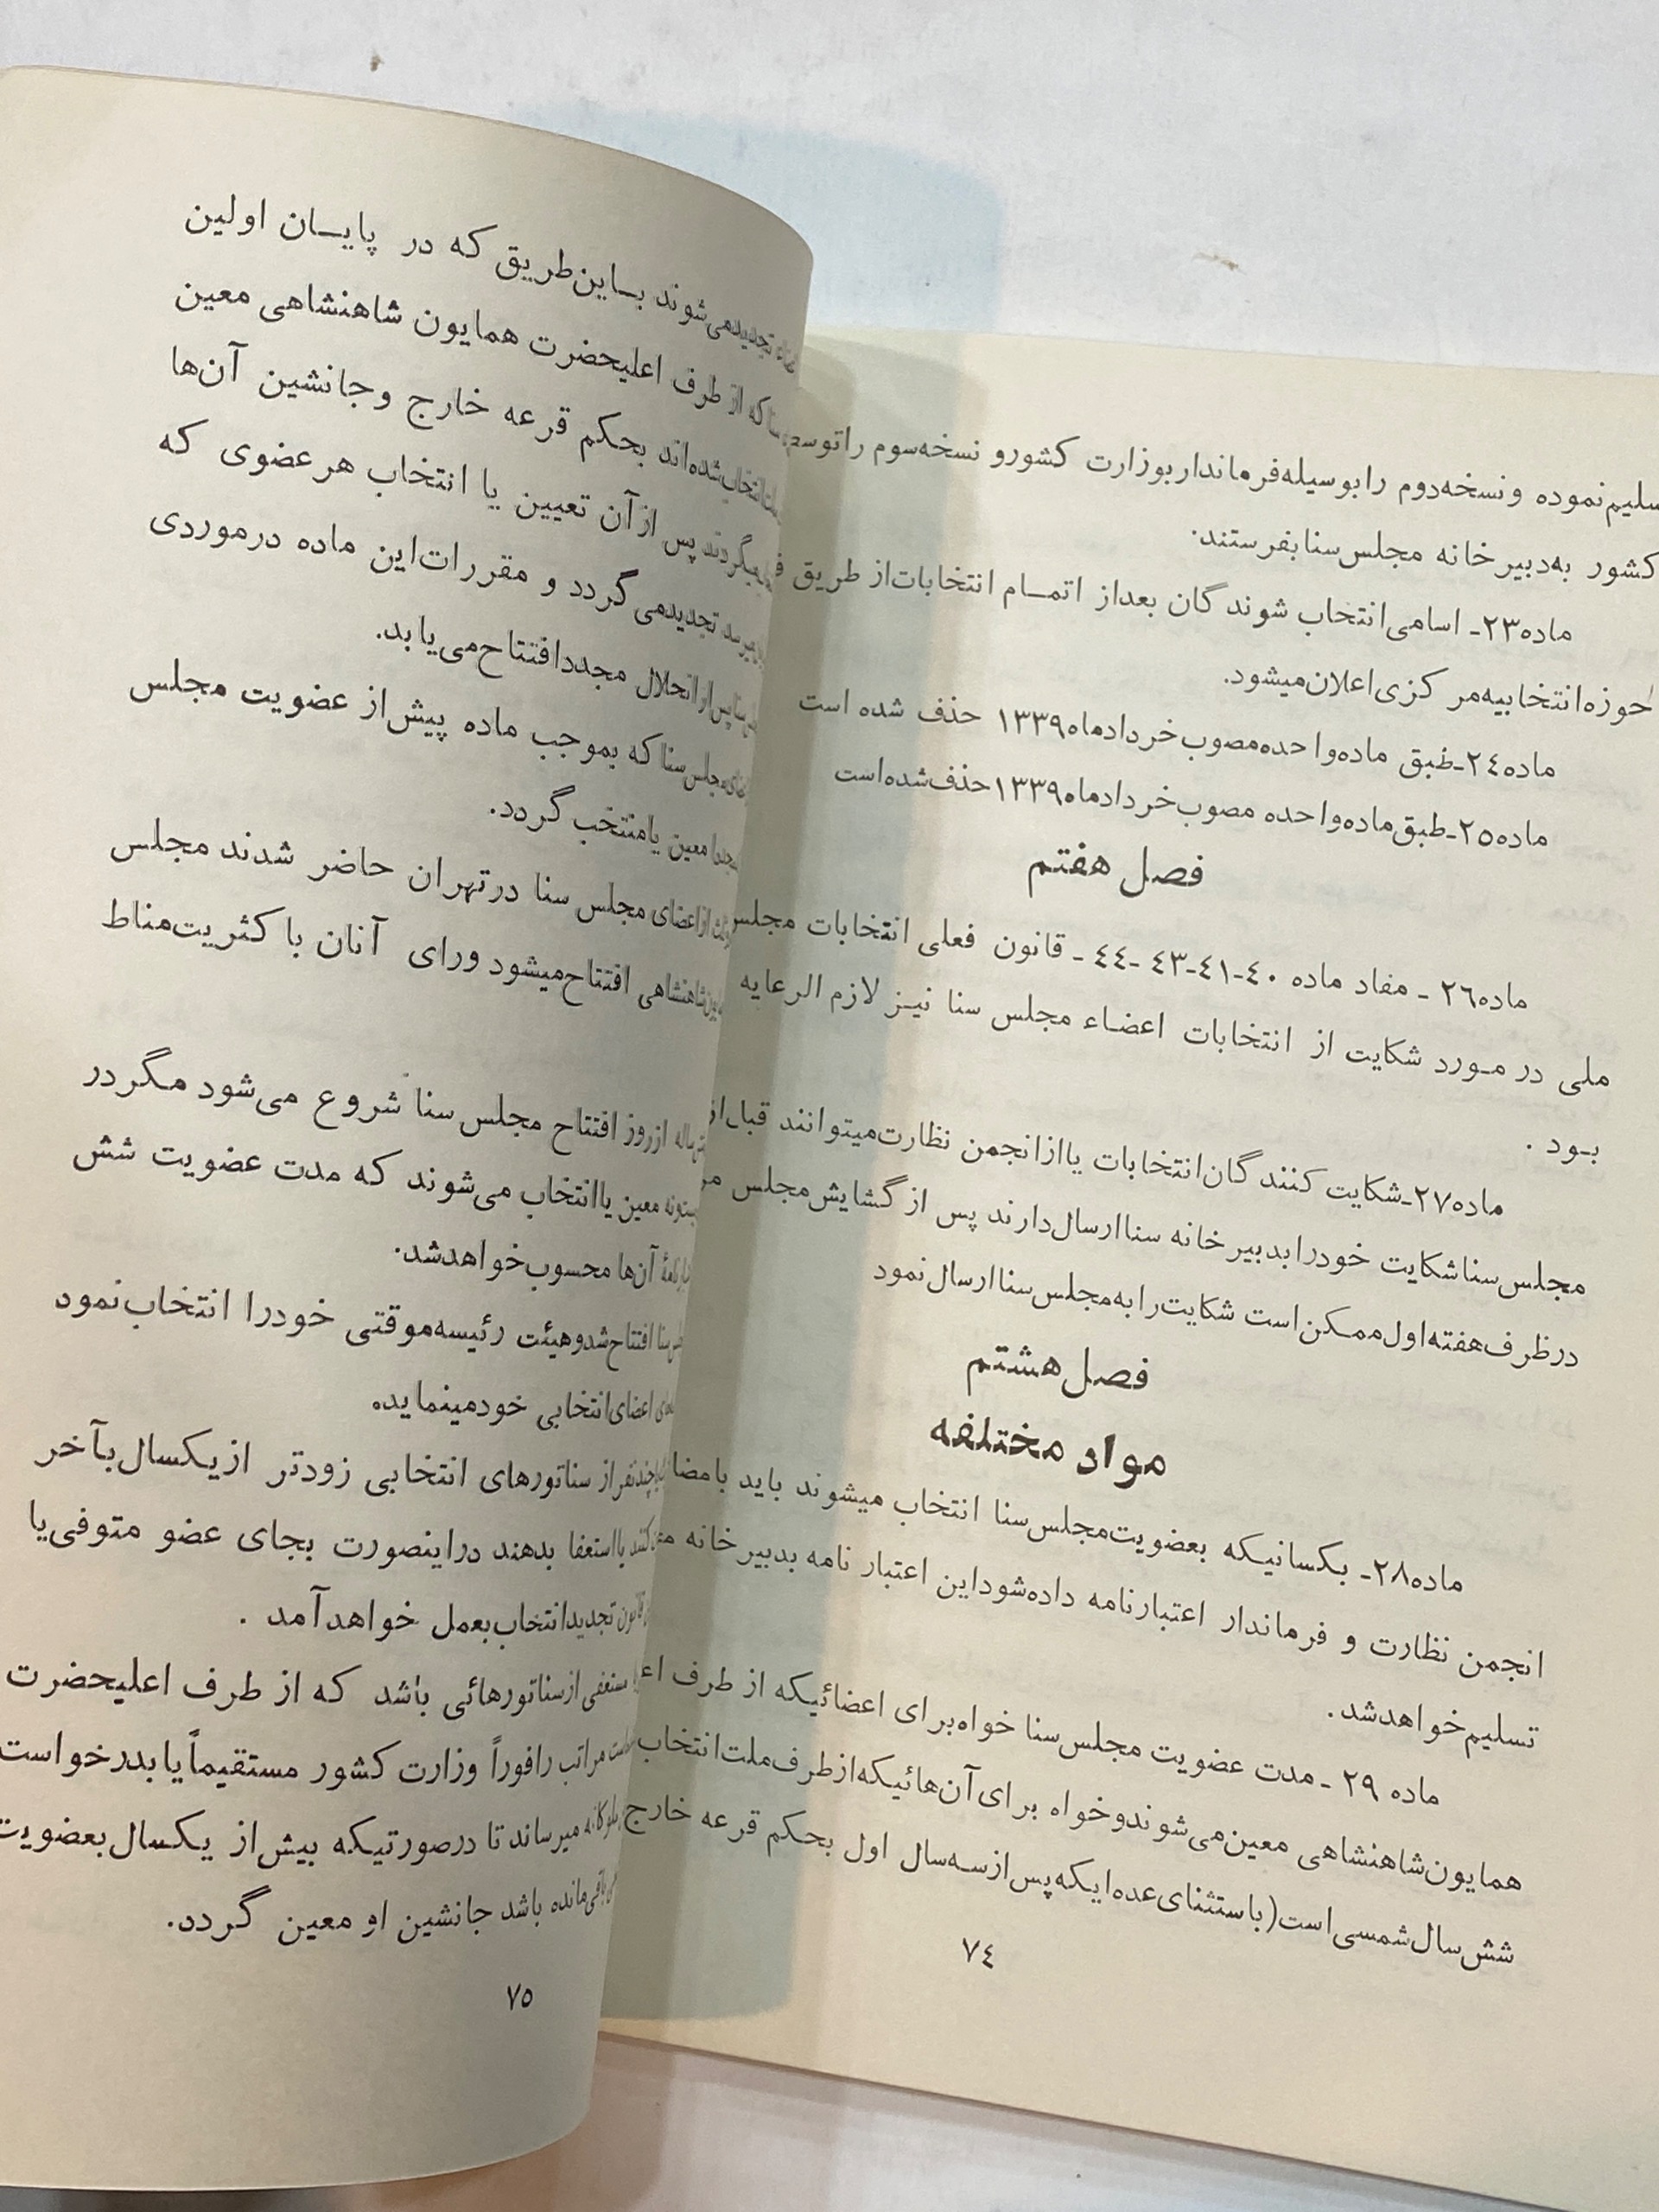 تسلیم نموده و نسخه دوم را بوسیله فرماندار بوزارت کشور و نسخه سوم را توسط
کشور به دبیرخانه مجلس سنا بفرستند.
ماده ۲۳ـ اسامی انتخاب شوندگان بعد از اتمـام انتخابات از طریق
حوزه انتخابیه مرکزی اعلان میشود.
ماده ۲٤ـ طبق ماده واحده مصوب خرداد ماه ۱۳۳۹ حذف شده است
ماده ۲٥ـ طبق ماده واحده مصوب خرداد ماه ۱۳۳۹ حذف شده است
فصل هفتم
ماده ۲٦ ـ مفاد ماده ٤۰-٤۱-٤۳ -٤٤ ـ قانون فعلی انتخابات مجلس
ملی در مـورد شکایت از انتخابات اعضـاء مجلس سنا نیـز لازم الرعایه
بـود .
ماده ۲۷ـ شکایت کنندگان انتخابات یا از انجمن نظارت میتوانند قبل از
مجلس سنا شکایت خود را بدبیرخانه سنا ارسال دارند پس از گشایش مجلس
در ظرف هفته اول ممکن است شکایت را به مجلس سنا ارسال نمود
فصل هشتم
مواد مختلفه
ماده ۲۸ـ بکسانیکه بعضویت مجلس سنا انتخاب میشوند باید بامضا
انجمن نظارت و فرماندار اعتبارنامه داده شود این اعتبار نامه بدبیرخانه
تسلیم خواهد شد.
ماده ۲۹ ـ مدت عضویت مجلس سنا خواه برای اعضائیکه از طرف
همایون شاهنشاهی معین می‌شوند و خواه برای آن‌هائیکه از طرف ملت انتخاب
شش سال شمسی است (باستثنای عده ایکه پس از سه سال اول بحکم قرعه خارج
۷٤
تجدید می‌شوند بـاین طریق که در پایـان اولین
که از طرف اعلیحضرت همایون شاهنشاهی معین
انتخاب شده‌اند بحکم قرعه خارج و جانشین آن‌ها
میگردند پس از آن تعیین یا انتخاب هر عضوی که
تجدید می گردد و مقررات این ماده در موردی
پس از انحلال مجدد افتتاح می‌یابد.
مجلس سنا که بموجب ماده پیش از عضویت مجلس
معین یا منتخب گردد.
از اعضای مجلس سنا در تهران حاضر شدند مجلس
شاهنشاهی افتتاح میشود و رای آنان با کثریت مناط
از روز افتتاح مجلس سنا شروع می‌شود مگر در
معین یا انتخاب می‌شوند که مدت عضویت شش
آن‌ها محسوب خواهد شد.
افتتاح شد و هیئت رئیسه موقتی خود را انتخاب نمود
اعضای انتخابی خود مینماید.
چند نفر از سناتورهای انتخابی زودتر از یکسال بآخر
یا استعفا بدهند در اینصورت بجای عضو متوفی یا
تجدید انتخاب بعمل خواهد آمد .
مستعفی از سناتورهائی باشد که از طرف اعلیحضرت
مراتب را فوراً وزارت کشور مستقیماً یا بدرخواست
میرساند تا در صورتیکه بیش از یکسال بعضویت
باقی مانده باشد جانشین او معین گردد.
۷٥